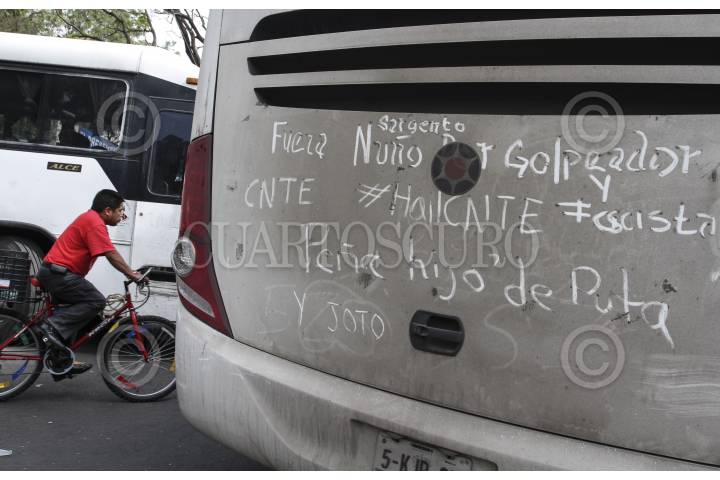 Sargento
Fuera Nuño Por Golpeador
CNTE #HailCNTE y #Fascista
Peña hijo de Puta
Y JOTO
ALCE
CUARTOSCURO
©
©
©
5-KJR